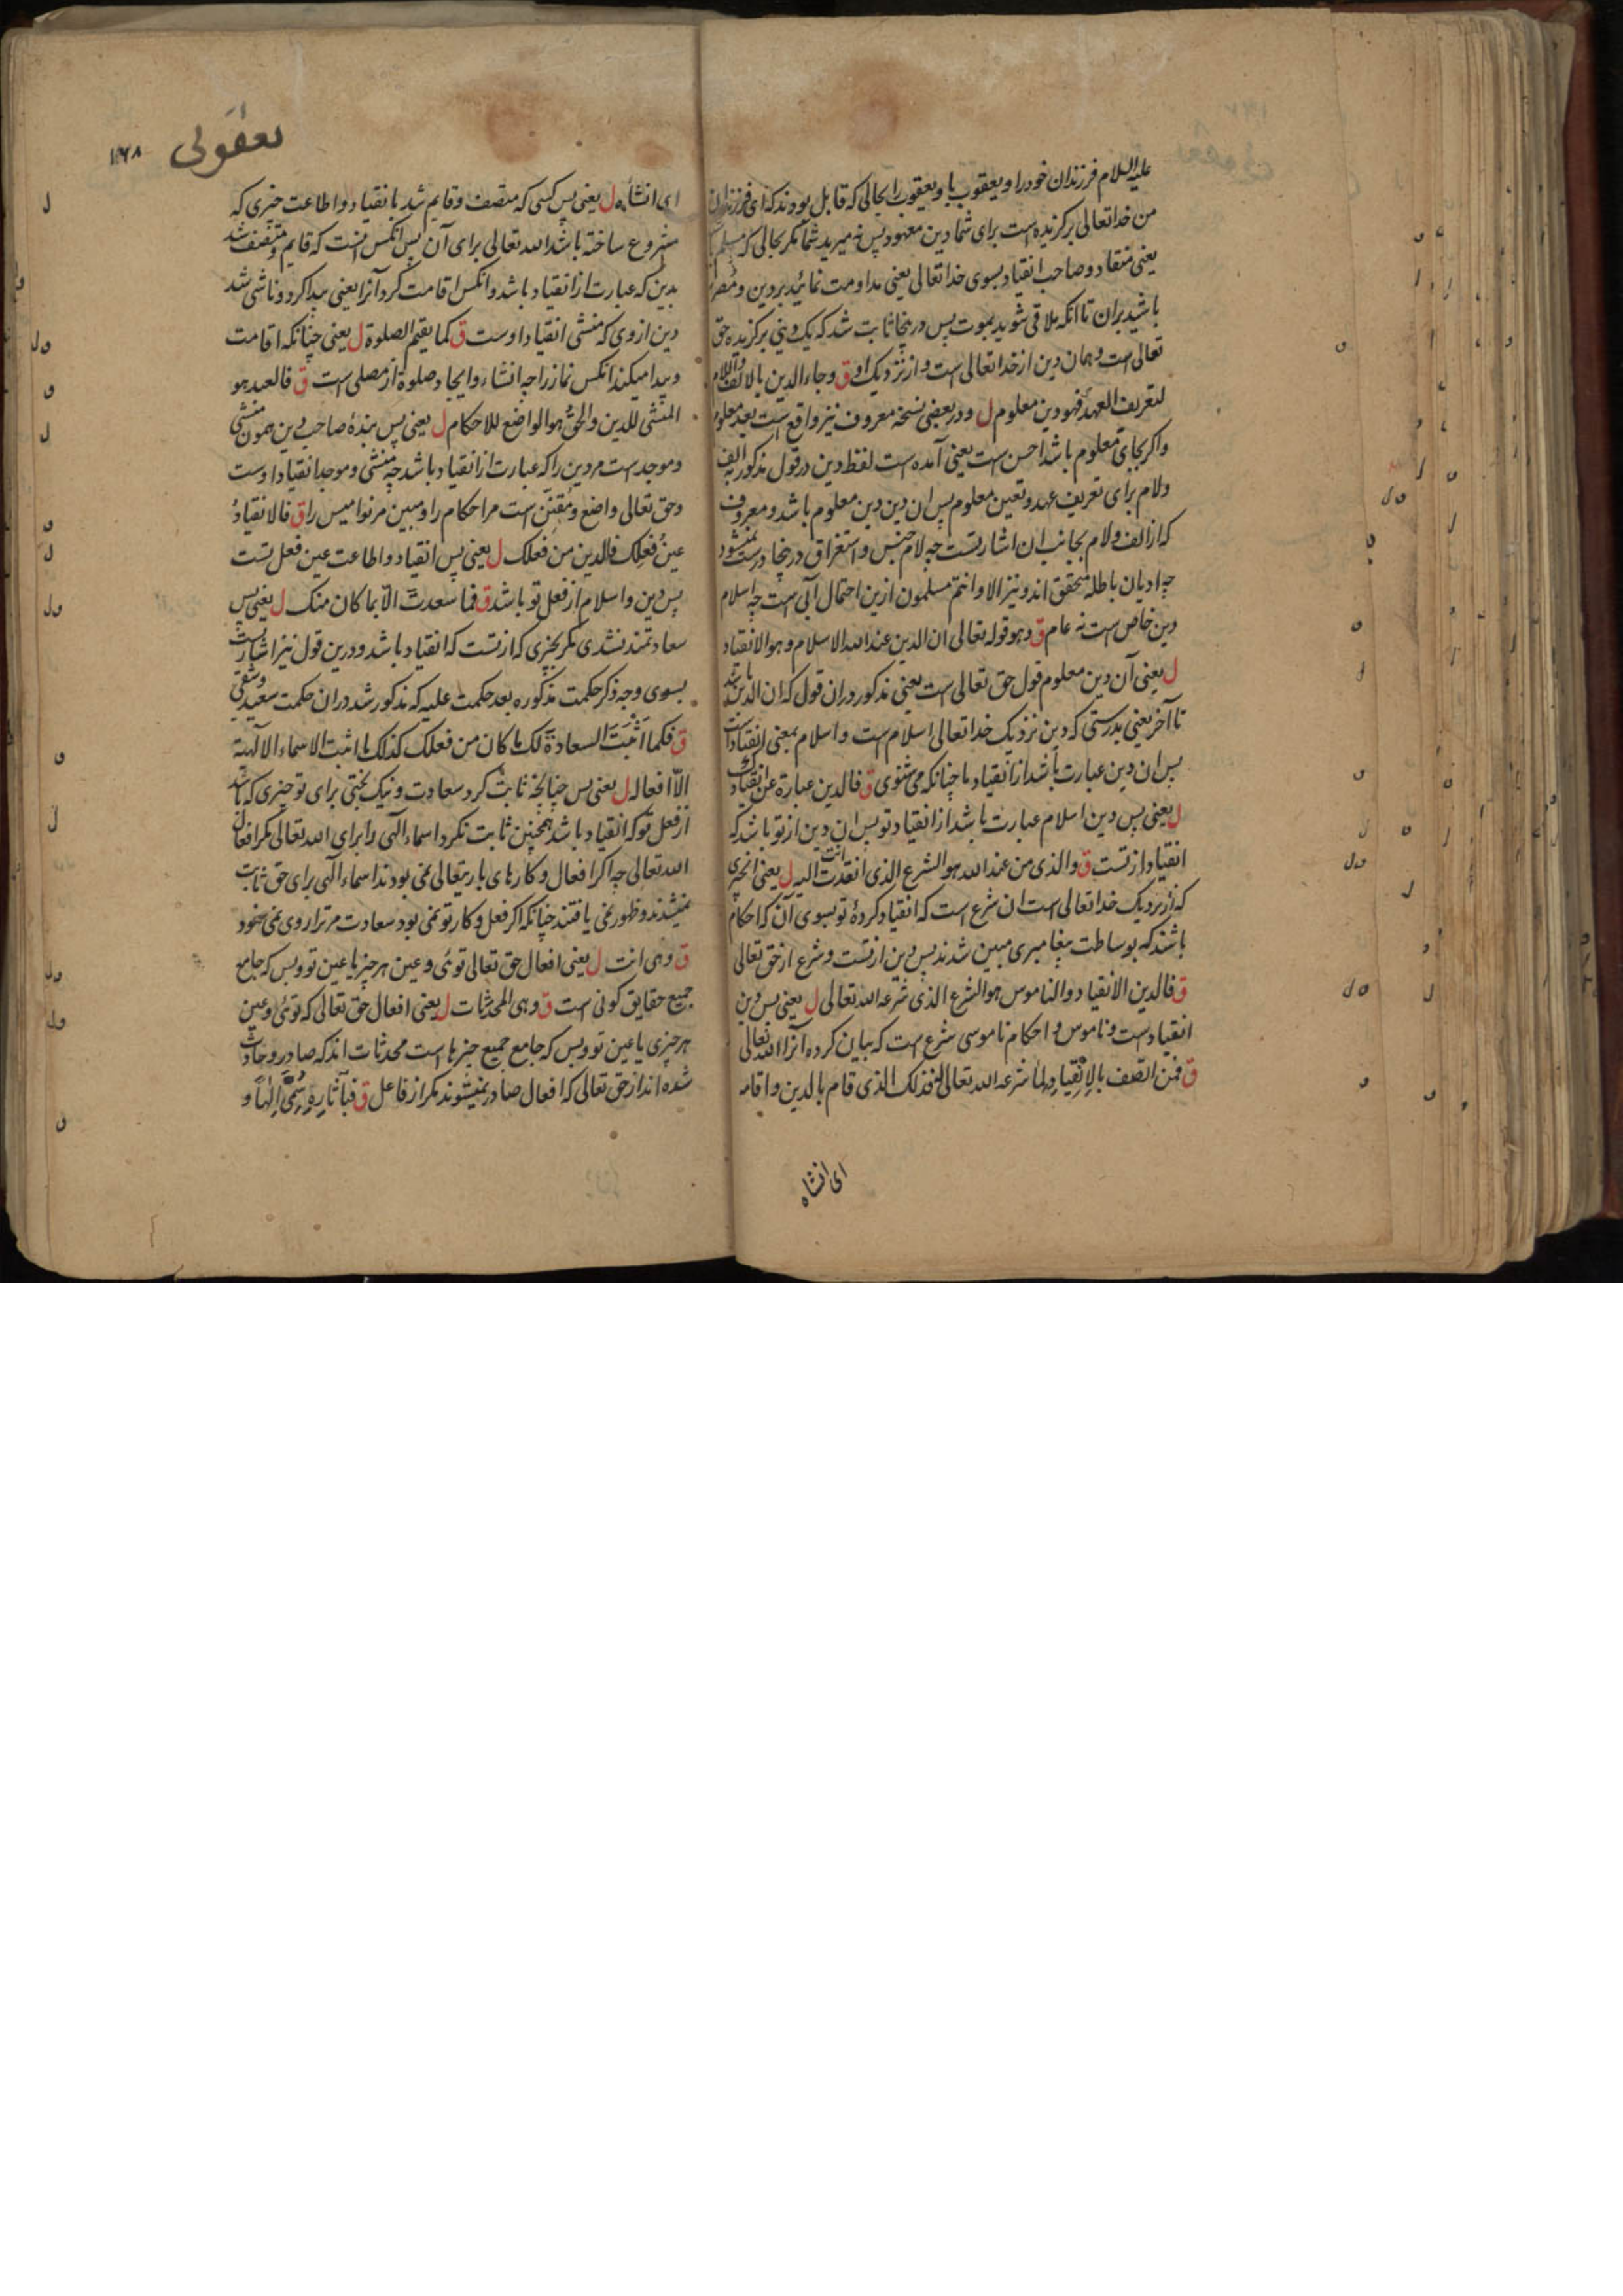 علیه السلام فرزندان خود را و یعقوب با و یعقوب را بحالی که قابل بودند که ای فرزندان
من خدا تعالی برگزیده است برای شما دین معهود پس نه میرید شما مگر بحالی که مسلم
یعنی منقاد و صاحب انقیاد بسوی خدا تعالی یعنی مداومت نمائید بر دین و مصر
باشید بران تا انکه ملاقی شوید بموت پس درینجا ثابت شد که یک دینی برگزیده حق
تعالی است و همان دین از خدا تعالی است و از نزدیک او ق وجاء الدین بالالف واللام
لتعریف العهد فهو دین معلوم ل و در بعضی نسخه معروف نیز واقع است بعد معلوم
و اگر بجای معلوم باشد احسن است یعنی آمده است لفظ دین در قول مذکور به الف
ولام برای تعریف عهد و تعین معلوم پس ان دین دین معلوم باشد و معروف
که از الف و لام بجانب ان اشارتست چه لام جنس و استغراق درینجا درست نمیشود
چه ادیان باطله متحقق اند و نیز الا وانتم مسلمون ازین احتمال آبی است چه اسلام
دین خاص است نه عام ق وهو قوله تعالی ان الدین عند الله الاسلام وهو الانقیاد
ل یعنی آن دین معلوم قول حق تعالی است یعنی مذکور دران قول که ان الدین باشد
تا آخر یعنی بدرستی که دین نزدیک خدا تعالی اسلام است و اسلام بمعنی انقیاد است
پس ان دین عبارت باشد از انقیاد ما چنانکه می شنوی ق فالدین عبارة عن انقیادک
ل یعنی پس دین اسلام عبارت باشد از انقیاد تو پس ان دین از تو باشد که
انقیاد از تست ق والذی من عند الله هو الشرع الذی انقدت انت الیه ل یعنی انچیزی
که از نزدیک خدا تعالی است ان شرع است که انقیاد کردهٔ تو بسوی آن که احکام
باشند که بوساطت پیغامبری مبین شدند پس دین از تست و شرع از حق تعالی
ق فالدین الانقیاد والناموس هو الشرع الذی شرعه الله تعالی ل یعنی پس دین
انقیاد است و ناموس و احکام ناموسی شرع است که بیان کرده آنرا الله تعالی
ق فمن اتصف بالانقیاد لما شرعه الله تعالی له فذلک الذی قام بالدین واقامه
ای انشاه
یعقوبی
ای انشأه ل یعنی پس کسی که متصف و قایم شد بانقیاد و اطاعت چیزی که
مشروع ساخته باشد الله تعالی برای آن پس انکس انست که قایم و متصف شد
بدین که عبارت از انقیاد باشد و انکس اقامت کرد آنرا یعنی پیدا کرد و ناشی شد
دین از وی که منشی انقیاد اوست ق کما یقیم الصلوة ل یعنی چنانکه اقامت
و پیدا میکند انکس نماز را چه انشاء و ایجاد صلوة از مصلی است ق فالعبد هو
المنشی للدین والحق هو الواضع للاحکام ل یعنی پس بندهٔ صاحب دین همون منشی
و موجد است مر دین را که عبارت از انقیاد باشد چه منشی و موجد انقیاد اوست
و حق تعالی واضع و مقنن است مر احکام را و مبین مر نوامیس را ق فالانقیاد
عین فعلک فالدین من فعلک ل یعنی پس انقیاد و اطاعت عین فعل تست
پس دین و اسلام از فعل تو باشد ق فما سعدت الا بما کان منک ل یعنی پس
سعادتمند نشدی مگر بچیزی که از تست که انقیاد باشد و درین قول نیز اشارتست
بسوی وجه ذکر حکمت مذکوره بعد حکمت علیه که مذکور شد دران حکمت سعید و شقی
ق فکما اثبت السعادة لک ما کان من فعلک کذلک ما اثبت الاسماء الالهیة
الا افعاله ل یعنی پس چنانچه ثابت کرد سعادت و نیک بختی برای تو چیزی که باشد
از فعل تو که انقیاد باشد همچنین ثابت نکرد اسماء الهی را برای الله تعالی مگر افعال
الله تعالی چه اگر افعال و کارهای باریتعالی نمی بودند اسماء الهی برای حق ثابت
نمیشدند و ظهور نمی یافتند چنانکه اگر فعل و کار تو نمی بود سعادت مر ترا روی نمی نمود
ق وهی انت ل یعنی افعال حق تعالی توئی و عین هر چیز یا عین تو و بس که جامع
جمیع حقایق کونی است ق وهی المحدثات ل یعنی افعال حق تعالی که توئی و عین
هر چیزی یا عین تو و بس که جامع جمیع چیزها است محدثات اند که صادر و حادث
شده اند از حق تعالی که افعال صادر نمیشوند مگر از فاعل ق فبآثاره سمی الها و